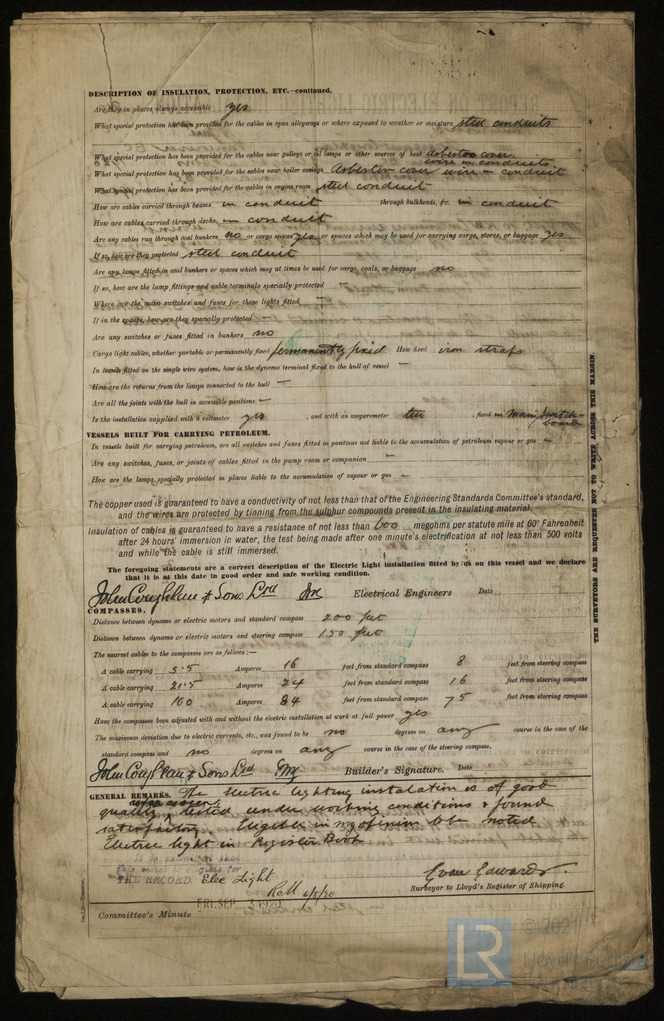 DESCRIPTION OF INSULATION, PROTECTION, ETC.—continued.
Are they in places always accessible yes
What special protection has been provided for the cables in open alleyways or where exposed to weather or moisture steel conduits
What special protection has been provided for the cables near galleys or oil lamps or other sources of heat asbestos cover
wire in conduits.
What special protection has been provided for the cables near boiler casings asbestos cover wire in conduit
What special protection has been provided for the cables in engine room steel conduit
How are cables carried through beams in conduit through bulkheads, &c. in conduit
How are cables carried through decks in conduit
Are any cables run through coal bunkers no or cargo spaces yes or spaces which may be used for carrying cargo, stores, or baggage yes
If so, how are they protected steel conduit
Are any lamps fitted in coal bunkers or spaces which may at times be used for cargo, coals, or baggage no
If so, how are the lamp fittings and cable terminals specially protected —
Where are the main switches and fuses for these lights fitted —
If in the spaces, how are they specially protected —
Are any switches or fuses fitted in bunkers no
Cargo light cables, whether portable or permanently fixed permanently fixed How fixed iron straps
In vessels fitted on the single wire system, how is the dynamo terminal fixed to the hull of vessel —
How are the returns from the lamps connected to the hull —
Are all the joints with the hull in accessible positions —
Is the installation supplied with a voltmeter yes, and with an amperemeter two, fixed on Main Switch-
board
VESSELS BUILT FOR CARRYING PETROLEUM.
In vessels built for carrying petroleum, are all switches and fuses fitted in positions not liable to the accumulation of petroleum vapour or gas —
Are any switches, fuses, or joints of cables fitted in the pump room or companion —
How are the lamps specially protected in places liable to the accumulation of vapour or gas —
The copper used is guaranteed to have a conductivity of not less than that of the Engineering Standards Committee's standard,
and the wires are protected by tinning from the sulphur compounds present in the insulating material.
Insulation of cables is guaranteed to have a resistance of not less than 600 megohms per statute mile at 60° Fahrenheit
after 24 hours' immersion in water, the test being made after one minute's electrification at not less than 500 volts
and while the cable is still immersed.
The foregoing statements are a correct description of the Electric Light installation fitted by us on this vessel and we declare
that it is at this date in good order and safe working condition.
John Coughlan & Sons Ltd Electrical Engineers Date
COMPASSES.
Distance between dynamo or electric motors and standard compass 200 feet
Distance between dynamo or electric motors and steering compass 150 feet
The nearest cables to the compasses are as follows:—
A cable carrying 5.5 Amperes 16 feet from standard compass 8 feet from steering compass
A cable carrying 21.5 Amperes 24 feet from standard compass 16 feet from steering compass
A cable carrying 160 Amperes 84 feet from standard compass 75 feet from steering compass
Have the compasses been adjusted with and without the electric installation at work at full power yes
The maximum deviation due to electric currents, etc., was found to be no degrees on any course in the case of the
standard compass and no degrees on any course in the case of the steering compass.
John Coughlan & Sons Ltd Builder's Signature. Date
GENERAL REMARKS. The Electric lighting instalation is of good
quality tested under working conditions & found
satisfactory Eligible in my opinion to be noted
Electric light in Register Book
It is submitted that
this vessel is eligible for
THE RECORD. Elec Light
6/8/20
Evan Edwards.
Surveyor to Lloyd's Register of Shipping.
FRI. SEP. 3 1920
Committee's Minute
THE SURVEYORS ARE REQUESTED NOT TO WRITE ACROSS THIS MARGIN.
LR
© 2021
Lloyd's Register